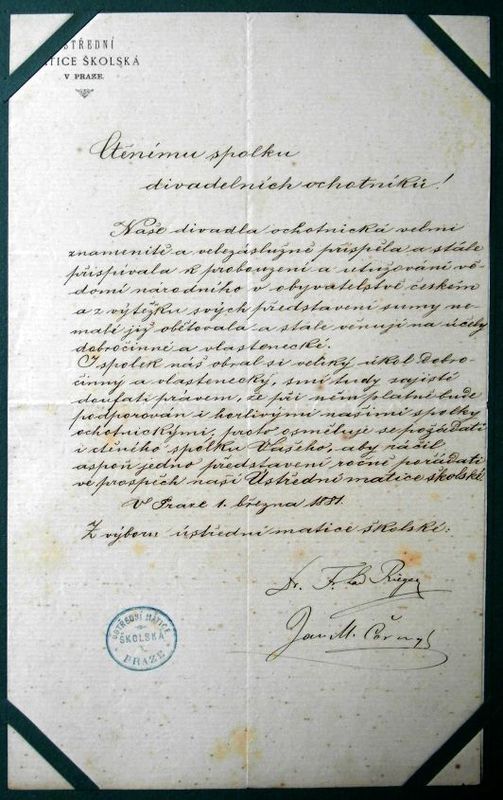 ÚSTŘEDNÍ
MATICE ŠKOLSKÁ
V PRAZE.
Ctěnímu spolku
divadelních ochotníků!
Naše divadla ochotnická velmi
znamenitě a velezáslužně přispěla a stále
přispívala k probouzení a utužování vě-
domí národního v obyvatelstvě českém
a z výtěžku svých představení sumy ne-
malé již obětovala a stále věnují na účely
dobročinné a vlastenecké.
I spolek náš obral si veliký úkol dobro-
činný a vlastenecký, smí tudy zajisté
doufati právem, že při něm platně bude
podporován i horlivými našimi spolky
ochotnickými, proto osměluje se požádati
i ctěného spolku Vašeho, aby ráčil
aspoň jedno představení ročně pořádati
ve prospěch naší Ústřední matice školské.
V Praze 1. března 1881.
Z výboru ústřední matice školské:
Dr. F. Lad Rieger
Jan M. Černý
ÚSTŘEDNÍ MATICE
ŠKOLSKÁ
V
PRAZE